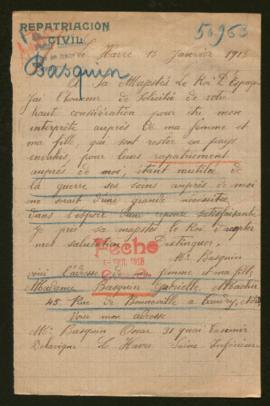 REPATRIACIÓN
CIVIL
50963
Basquin
Le Havre 15 Janvier 1918
Sa Majesté Le Roi D'Espagne
J'ai l'honneur de Solicité de votre
haut considération pour être mon
interprète auprès de ma femme et
ma fille, qui sont rester en pays
envahis, pour leurs rapatriement
auprès de moi, étant mutilé de
la guerre ses soins auprès de moi
me serait d'une grande nécessité
dans l'espoir d'une réponse satisfaisante
Je prie sa majesté le Roi d'accepter
met salutation Distinguer.
Mr Basquin
Fecho
1918
voici l'adresse de ma femme et ma fille
Madame Basquin Gabrielle
45 Rue de
Voici mon adresse
Mr Basquin Oscar 31 quai Casimir
Delavigne Le Havre Seine Inférieure